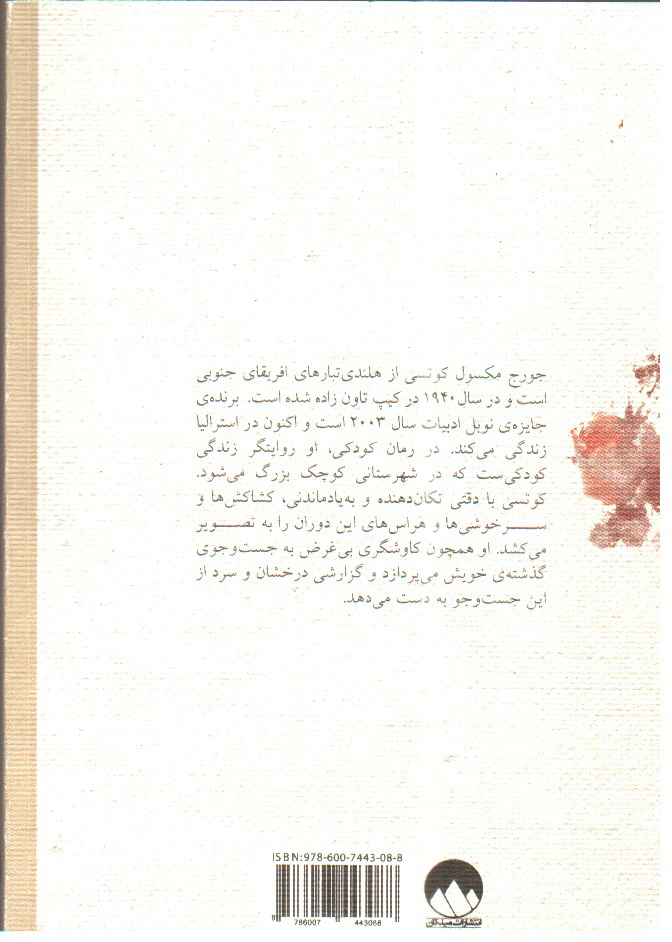 جورج مکسول کوتسی از هلندی‌تبارهای افریقای جنوبی
است و در سال ۱۹۴۰ در کیپ تاون زاده شده است. برنده‌ی
جایزه‌ی نوبل ادبیات سال ۲۰۰۳ است و اکنون در استرالیا
زندگی می‌کند. در رمان کودکی، او روایتگر زندگی
کودکی‌ست که در شهرستانی کوچک بزرگ می‌شود.
کوتسی با دقتی تکان‌دهنده و به‌یادماندنی، کشاکش‌ها و
ســـرخوشی‌ها و هراس‌های این دوران را به تصـــویر
می‌کشد. او همچون کاوشگری بی‌غرض به جست‌وجوی
گذشته‌ی خویش می‌پردازد و گزارشی درخشان و سرد از
این جست‌وجو به دست می‌دهد.
ISBN:978-600-7443-08-8
9 786007 443088
انتشارات میلکان